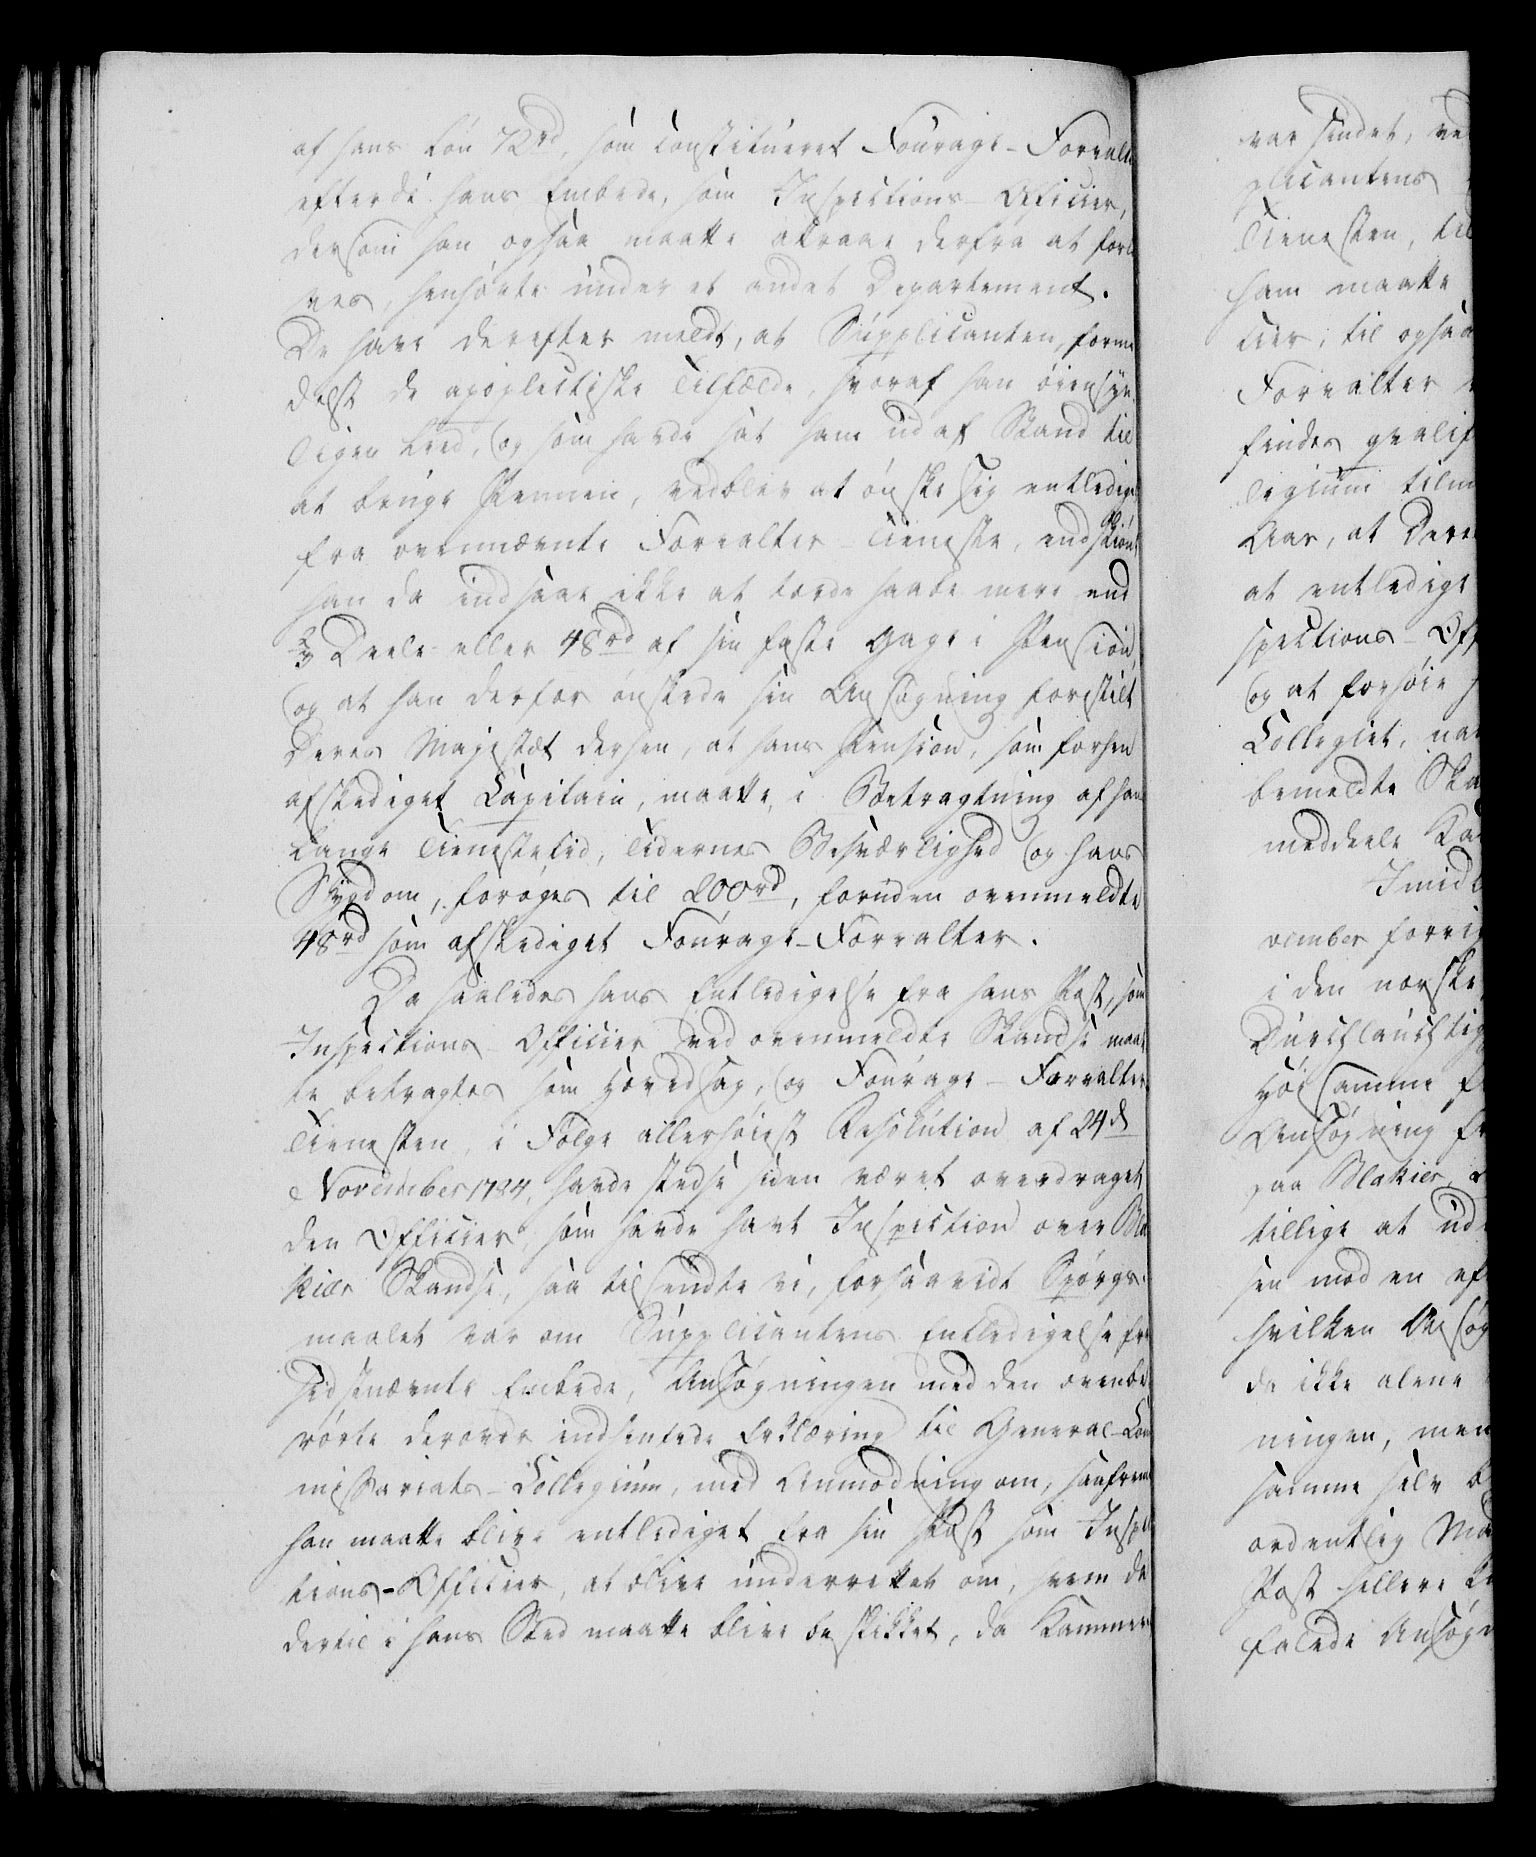 af hans Løn 72rd, som constitueret Fourage-Forvalt
efterdi hans Embede, som Inspections-Officier,
dersom han ogsaa maatte attraae derfra at forlo
ves, henhørte under et andet Departement.
De have derefter meldt, at Supplicanten, forme
delst de apoplectiske Tilfælde, hvoraf han øiensyn
ligen leed, og som havde sat ham ud af Stand til
at bruge Pennen, vedblev at ønske sig entledige
fra ovennævnte Forvalter-Tieneste, endskiønt
han da indsaae ikke at torde haabe mere end
2/3 Deele eller 48rd af sin faste Gage i Pension,
og at han derfor ønskede sin Ansøgning forestilt
Deres Majestæt derhen, at hans Pension, som forhen
afskediget Capitain, maatte, i Betragtning af hans
lange Tienestetid, Tidernes Besværlighed og hans
Sygdom, forøges til 200rd, foruden ovenmeldte
48rd som afskediget Fourage-Forvalter.
Da saaledes hans Entledigelse fra hans Post, som
Inspections-Officier ved ovenmeldte Skandse maat
te betragtes som Hovedsag, og Fourage-Forvalter
Tienesten, i Følge allerhøiest Resolution af 24d
November 1784, havde stedse siden været overdraget
den Officier, som havde havt Inspection over Bla
kiær Skandse, saa tilsendte vi, forsaavidt Spørgs-
maalet var om Supplicantens Entledigelse fra
sidstnævnte Embede, Ansøgningen med den ovenbe
rørte derover indhentede Erklæring til General-Com
missariats-Collegium, med Anmodning om, saafremt
han maatte blive entlediget fra sin Post som Inspec
tions-Officier, at blive underrettet om, hvem der
dertil i hans Sted maatte blive beskikket, da Kammer
var sindet, ved
plicantens
Tienesten, til
ham maatte
cier, til ogsaa
Forvalter
findes qvalif
legium tilm
Aar, at Dere
at entledige
spections-Off
og at forhøie
Collegiet, na
bemeldte Ska
meddeele Ka
Imidl
vember forrig
i den norske
Durchlauchtig
Høisamme f
Ansøgning fr
paa Blakier,
tillige at ud
sen mod en ef
hvilken Ansøg
da ikke alene
ningen, men
samme selv b
ordentlig Ma
Post hellere
falede Ansøgn